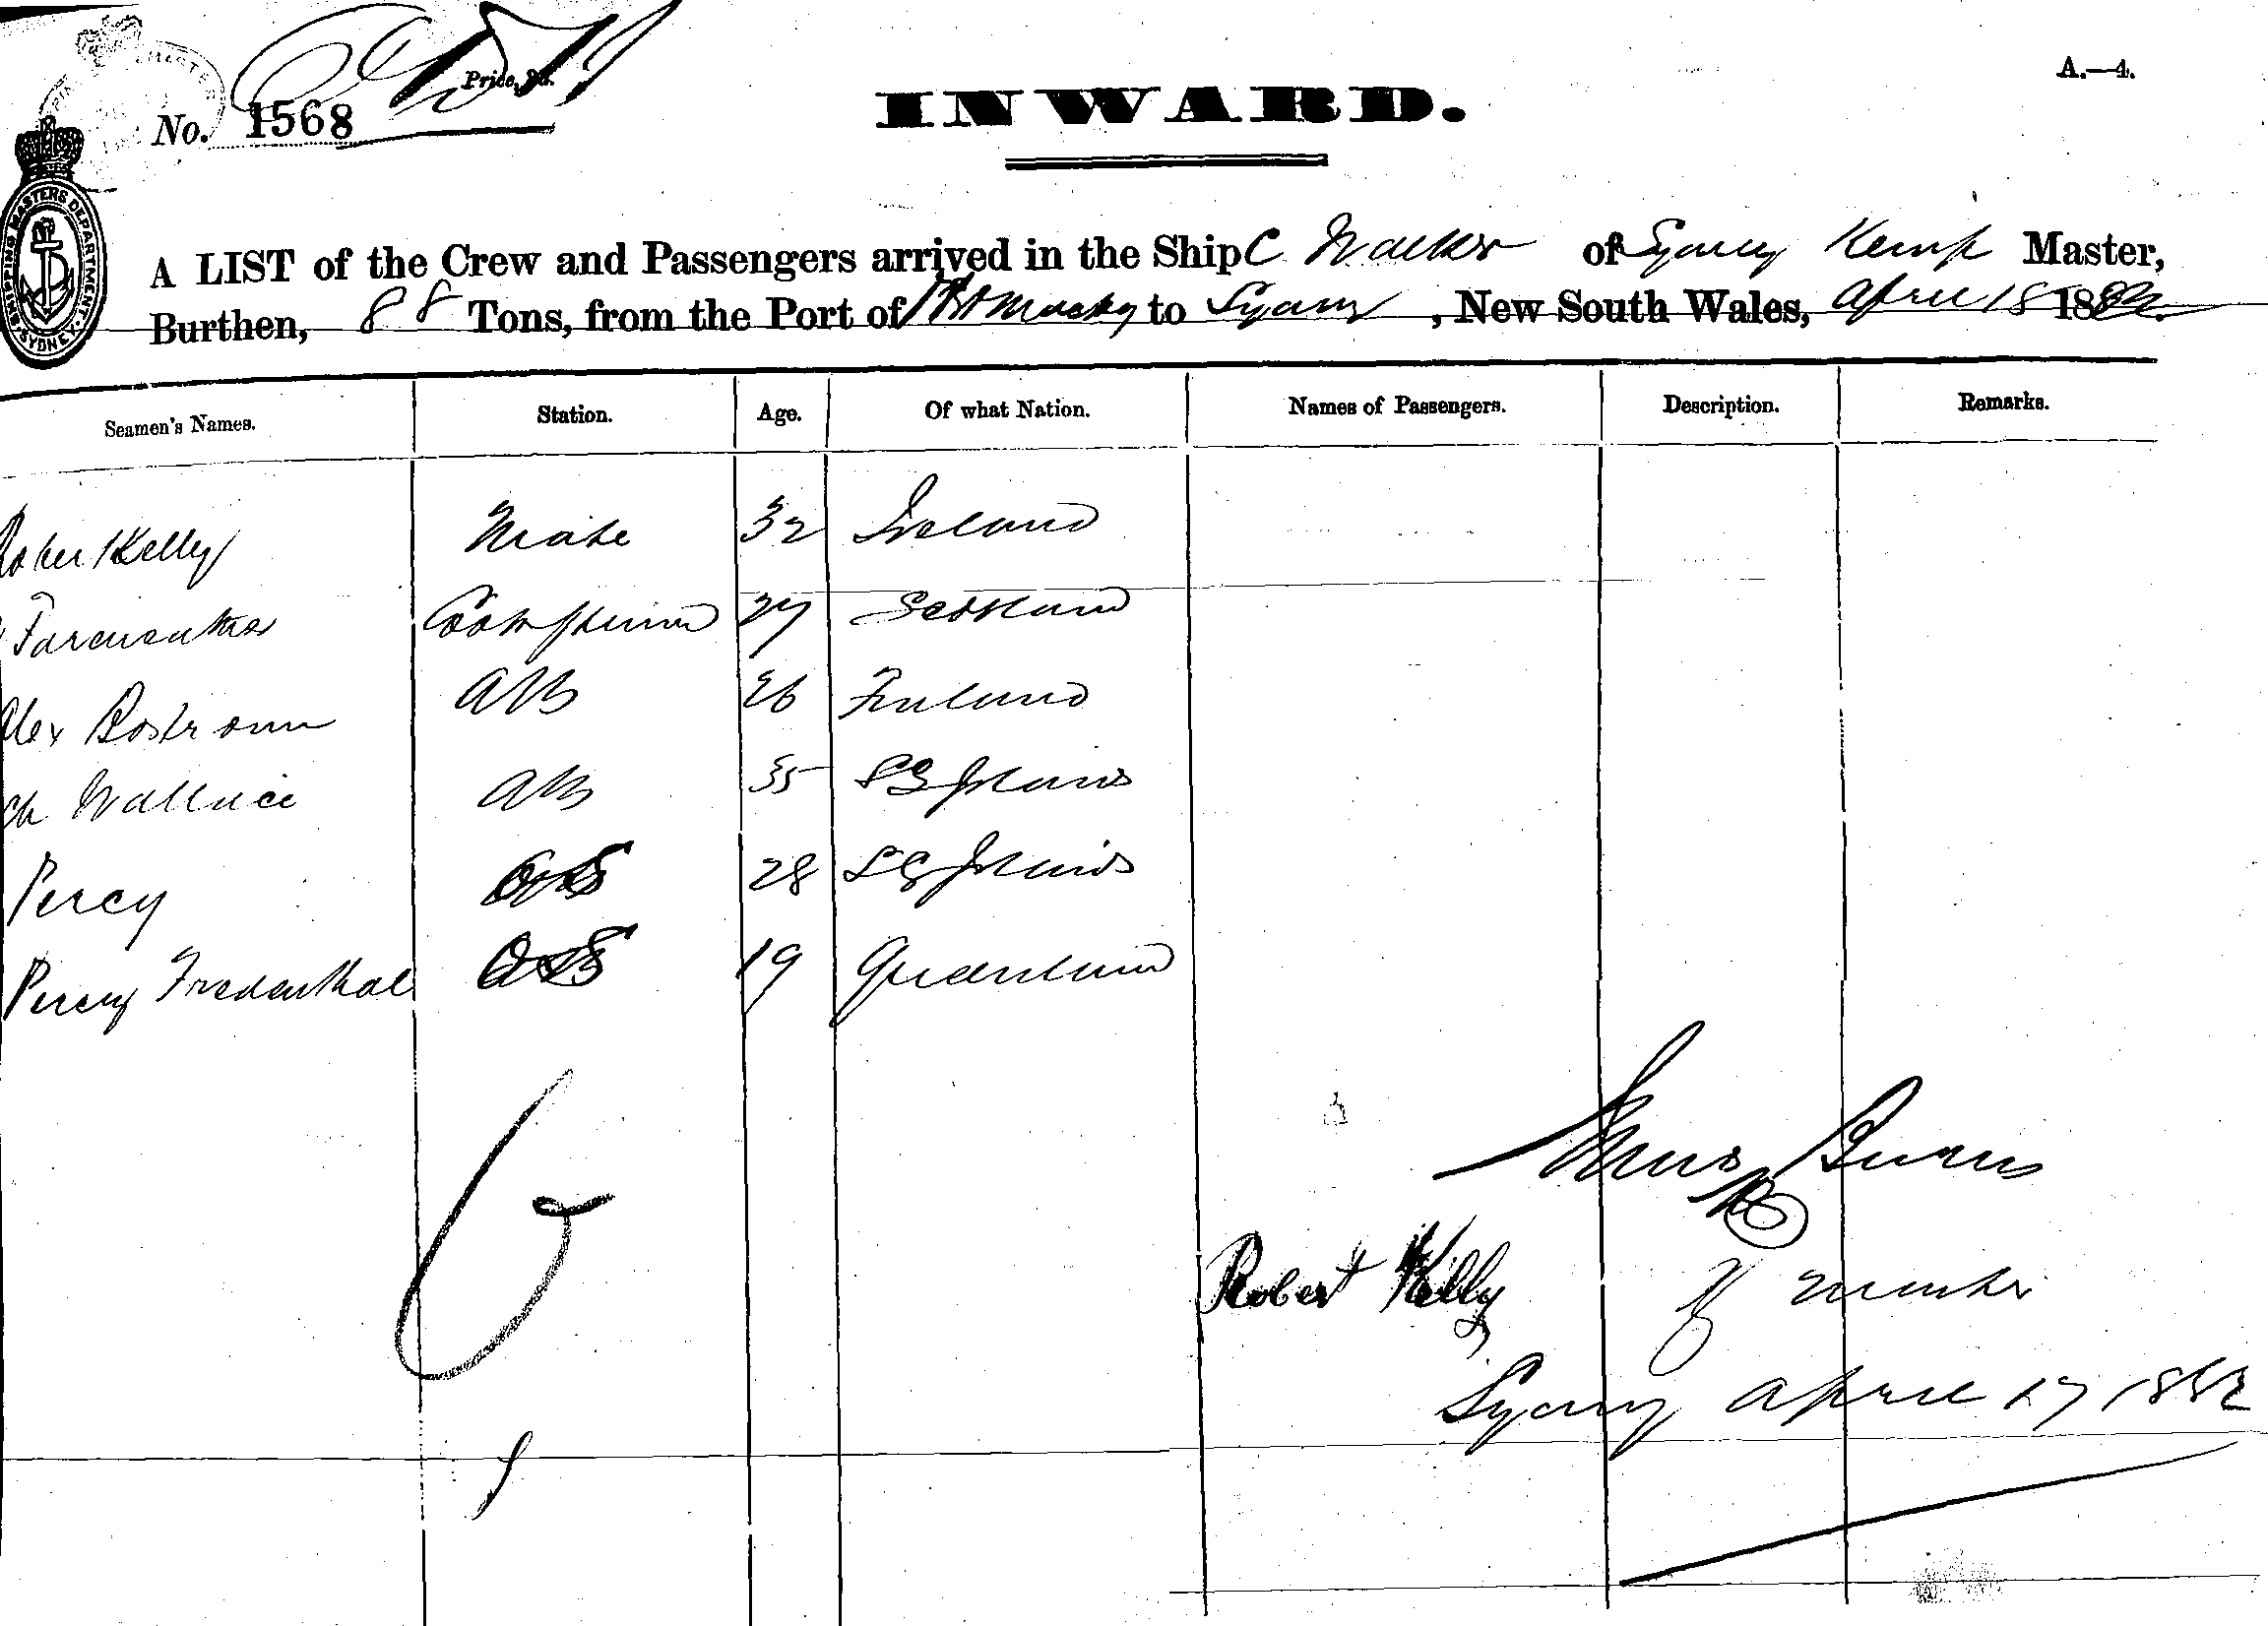 Price, 3d.
A.—4.
No. 1568
INWARD.
SHIPPING MASTERS DEPARTMENT SYDNEY
A LIST of the Crew and Passengers arrived in the Ship C Walker of Sydney Kemp Master,
Burthen, 88 Tons, from the Port of to Sydney, New South Wales, April 18 1882.
Seamen's Names. Station. Age. Of what Nation. Names of Passengers. Description. Remarks.
Robert Kelly Mate 32 Ireland
27 Scotland
Alex Bostrom AB 26 Finland
Wallace AB 35 S S Islands
Percy OS 28 S S Islands
Percy Fredenthal OS 19 Queensland
Burns
Robert Kelly
Sydney April 17 1882